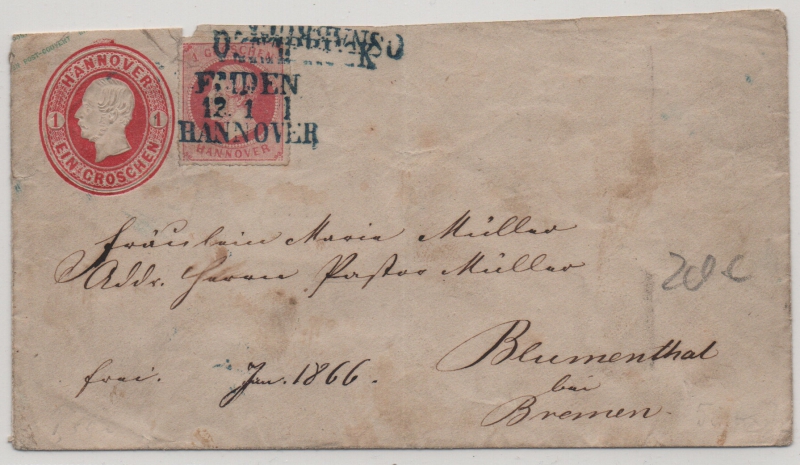 POST-COUVERT
HANNOVER
1 1
EIN GROSCHEN
1 GROSCHEN
HANNOVER
EMDEN
12 1 1
HANNOVER
Fräulein Marie Müller
Addr. Herrn Pastor Müller
Blumenthal
bei
Bremen.
frei.
Jan. 1866.